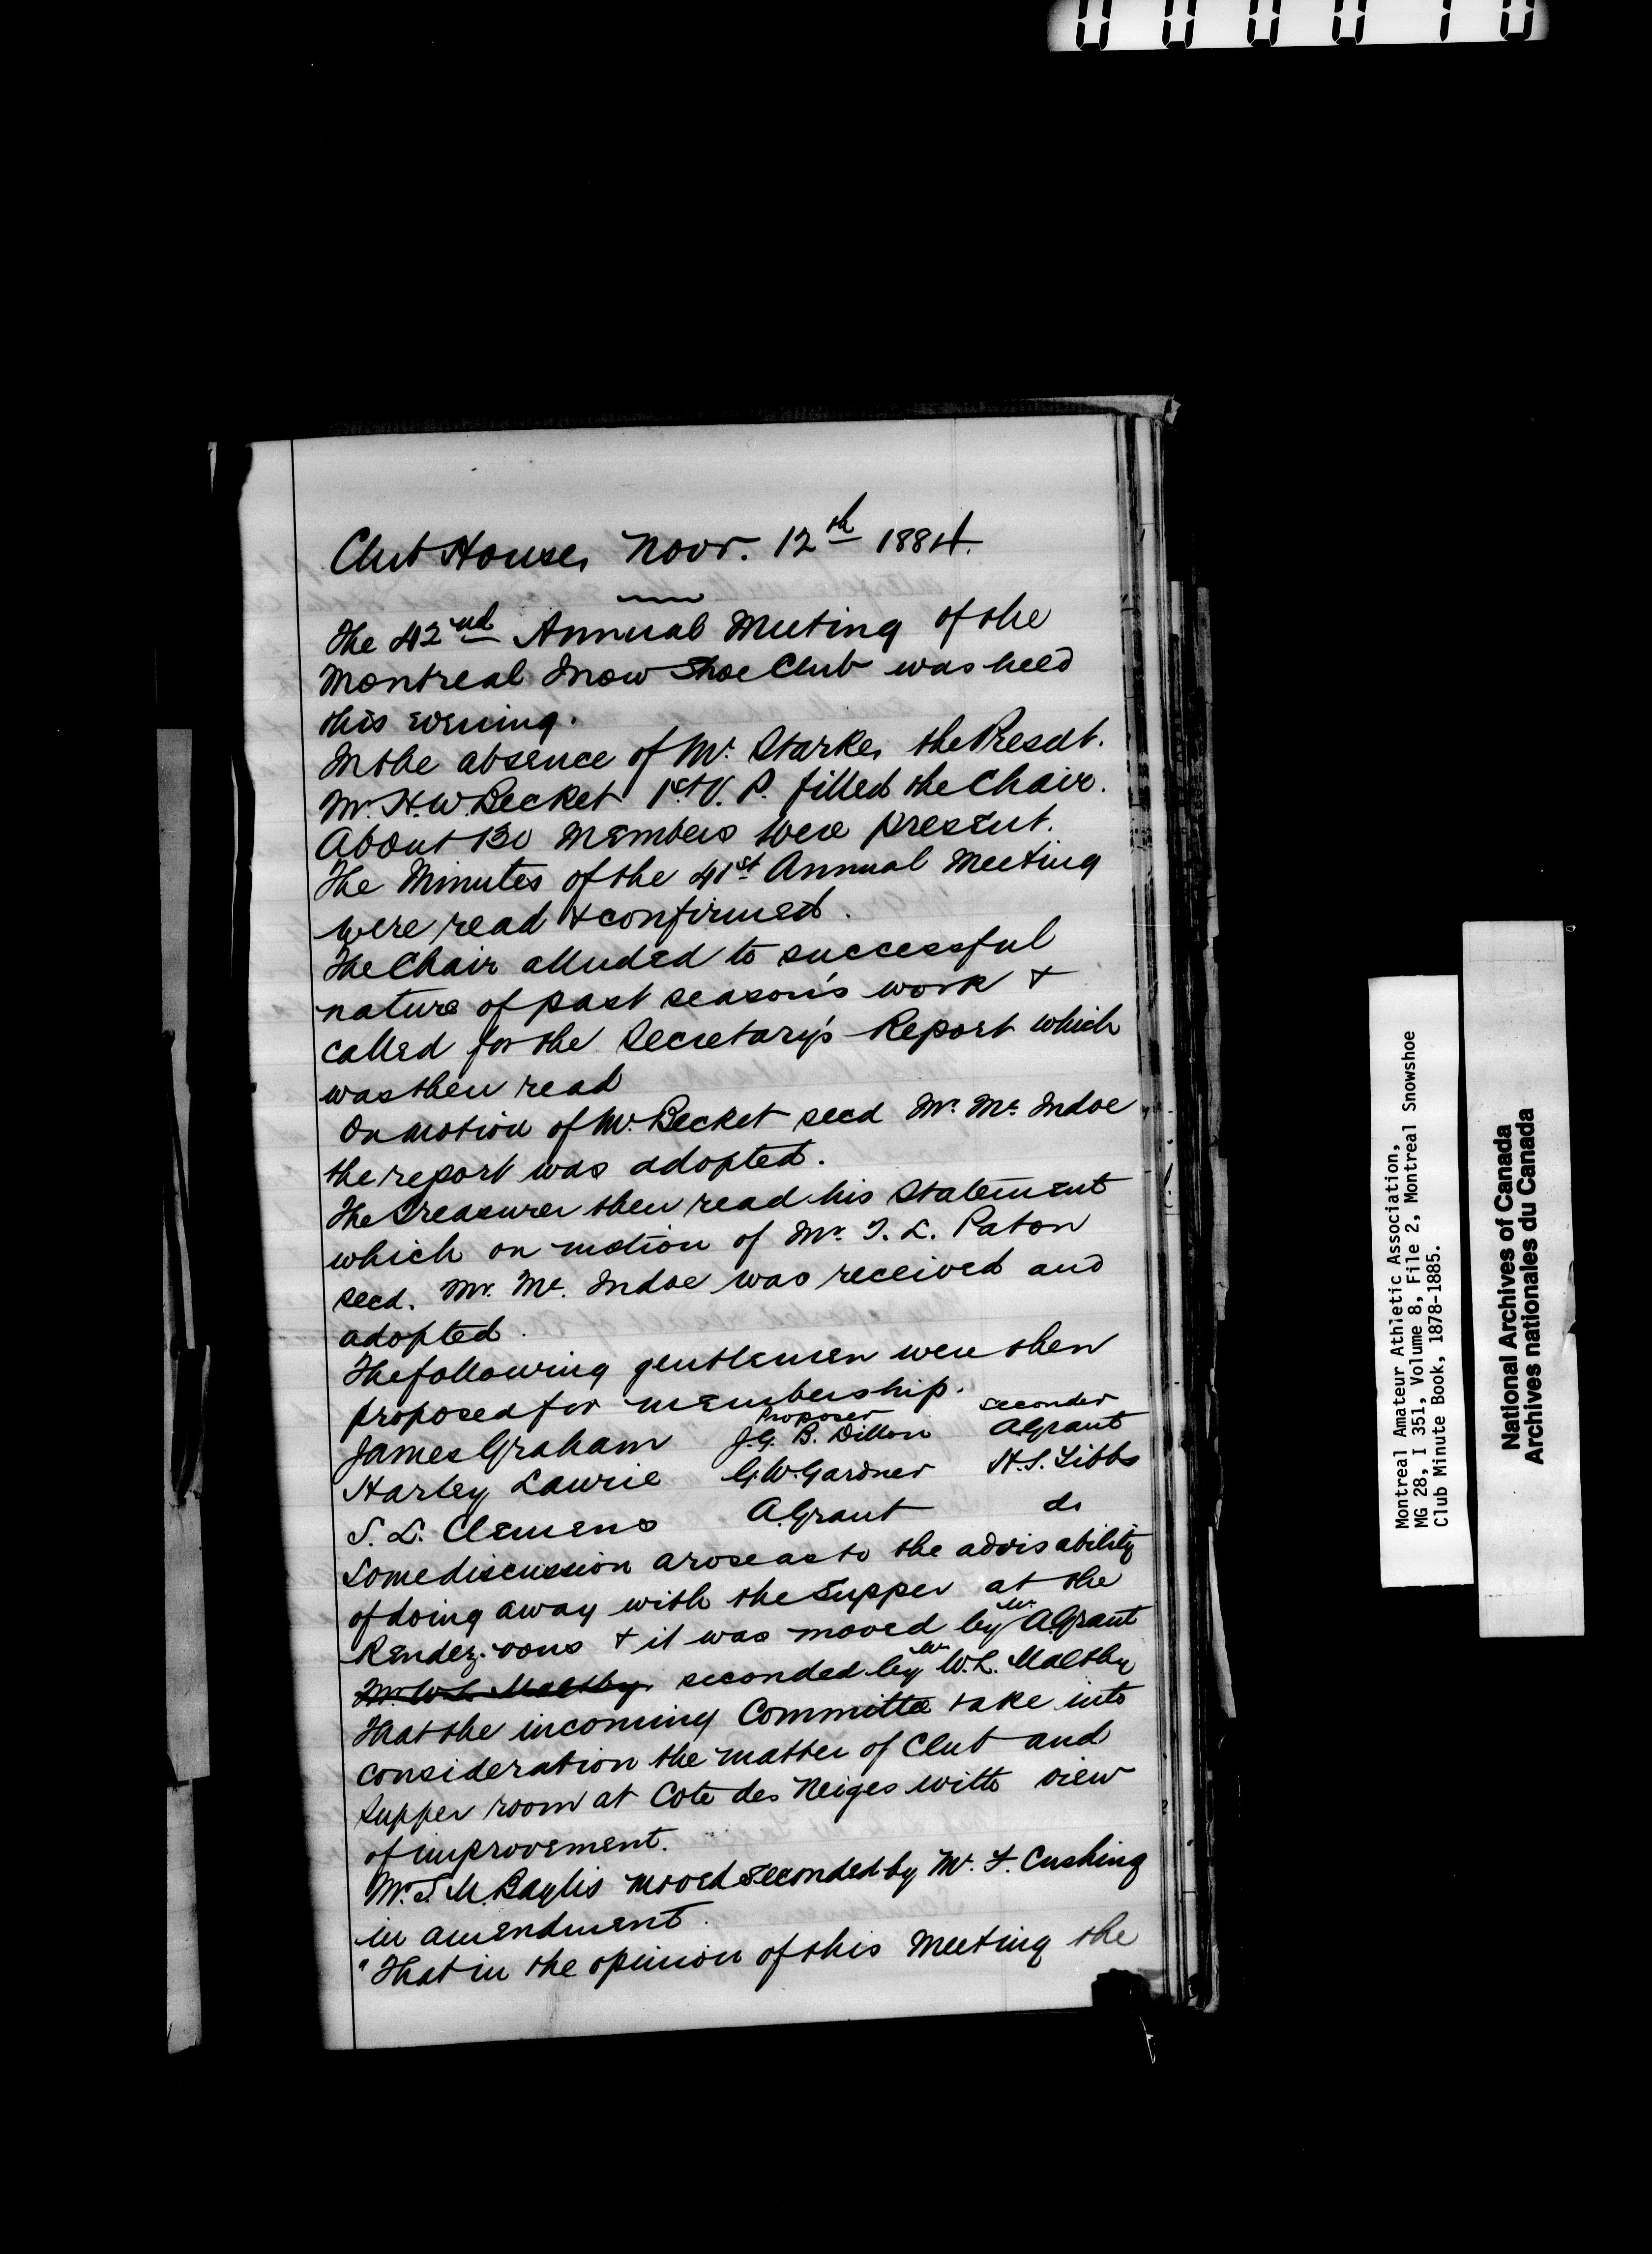 000010
Club House, Novr. 12th 1884.
The 42nd Annual Meeting of the
Montreal Snow Shoe Club was held
this evening.
In the absence of Mr. Starke, the Presdt.
Mr. H.W. Becket 1st V. P. filled the Chair.
About 130 members were present.
The Minutes of the 41st Annual Meeting
were read & confirmed.
The Chair alluded to successful
nature of past season's work &
called for the Secretary's Report which
was then read
On motion of Mr. Becket secd Mr. Mc. Indoe
the report was adopted.
The Treasurer then read his Statement
which on motion of Mr. T. L. Paton
secd. Mr. Mc. Indoe was received and
adopted.
The following gentlemen were then
proposed for membership.
Proposer seconder
James Graham J.G. B. Dillon A Grant
Harley Laurie G.W. Gardner H.S. Tibbs
S. L. Clemens A. Grant do
Some discussion arose as to the advisability
of doing away with the Supper at the
Rendez-vous & it was moved by Mr. A Grant
Mr. W. L. Maltby seconded by Mr. W. L. Maltby
That the incoming Committee take into
consideration the matter of Club and
Supper room at Cote des Neiges with view
of improvement.
Mr. S. M. Baylis moved seconded by Mr. F. Cushing
in amendment.
"That in the opinion of this Meeting the
Montreal Amateur Athletic Association,
MG 28, I 351, Volume 8, File 2, Montreal Snowshoe
Club Minute Book, 1878-1885.
National Archives of Canada
Archives nationales du Canada